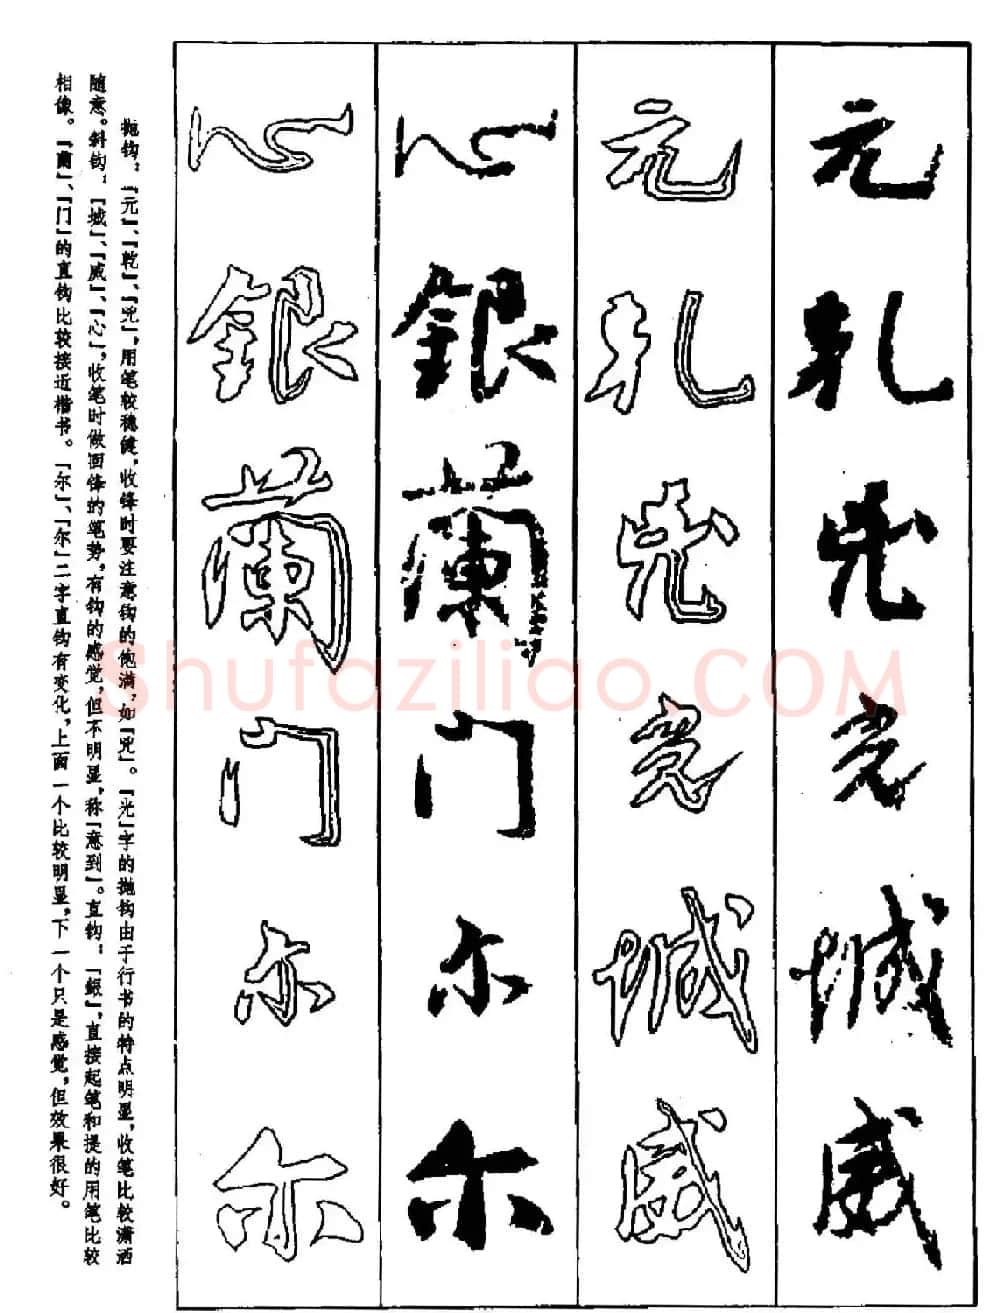 元乾兕光城威
元乾兕光城威
心銀蘭门尔尔
心銀蘭门尔尔
抛钩:「元」、「乾」、「兕」,用笔较稳健,收锋时要注意钩的饱满,如「兕」。「光」字的抛钩由于行书的特点明显,收笔比较潇洒
随意。斜钩:「城」、「威」、「心」,收笔时做回锋的笔势,有钩的感觉,但不明显,称「意到」。直钩:「銀」,直接起笔和提的用笔比较
相像。「蘭」、「门」的直钩比较接近楷书。「尔」、「尔」二字直钩有变化,上面一个比较明显,下一个只是感觉,但效果很好。
Shufaziliao.COM